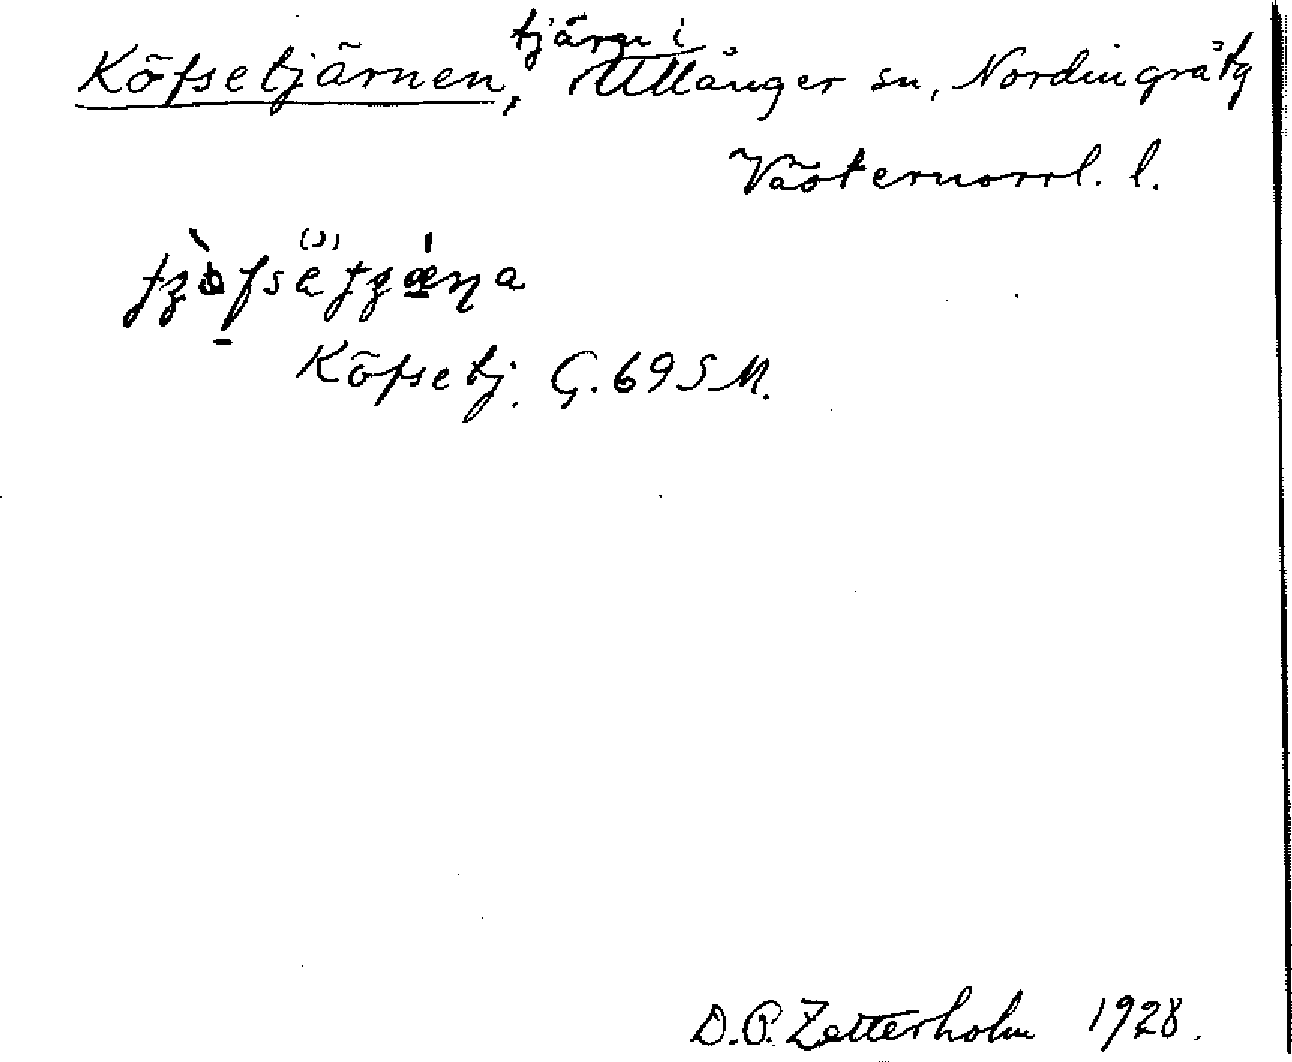 Köfsetjärnen, tjärn i Ullånger sn, Nordingrå tg
Västernorrl. l.
Köfsetj. G. 69 S M.
D. O. Zetterholm 1928.